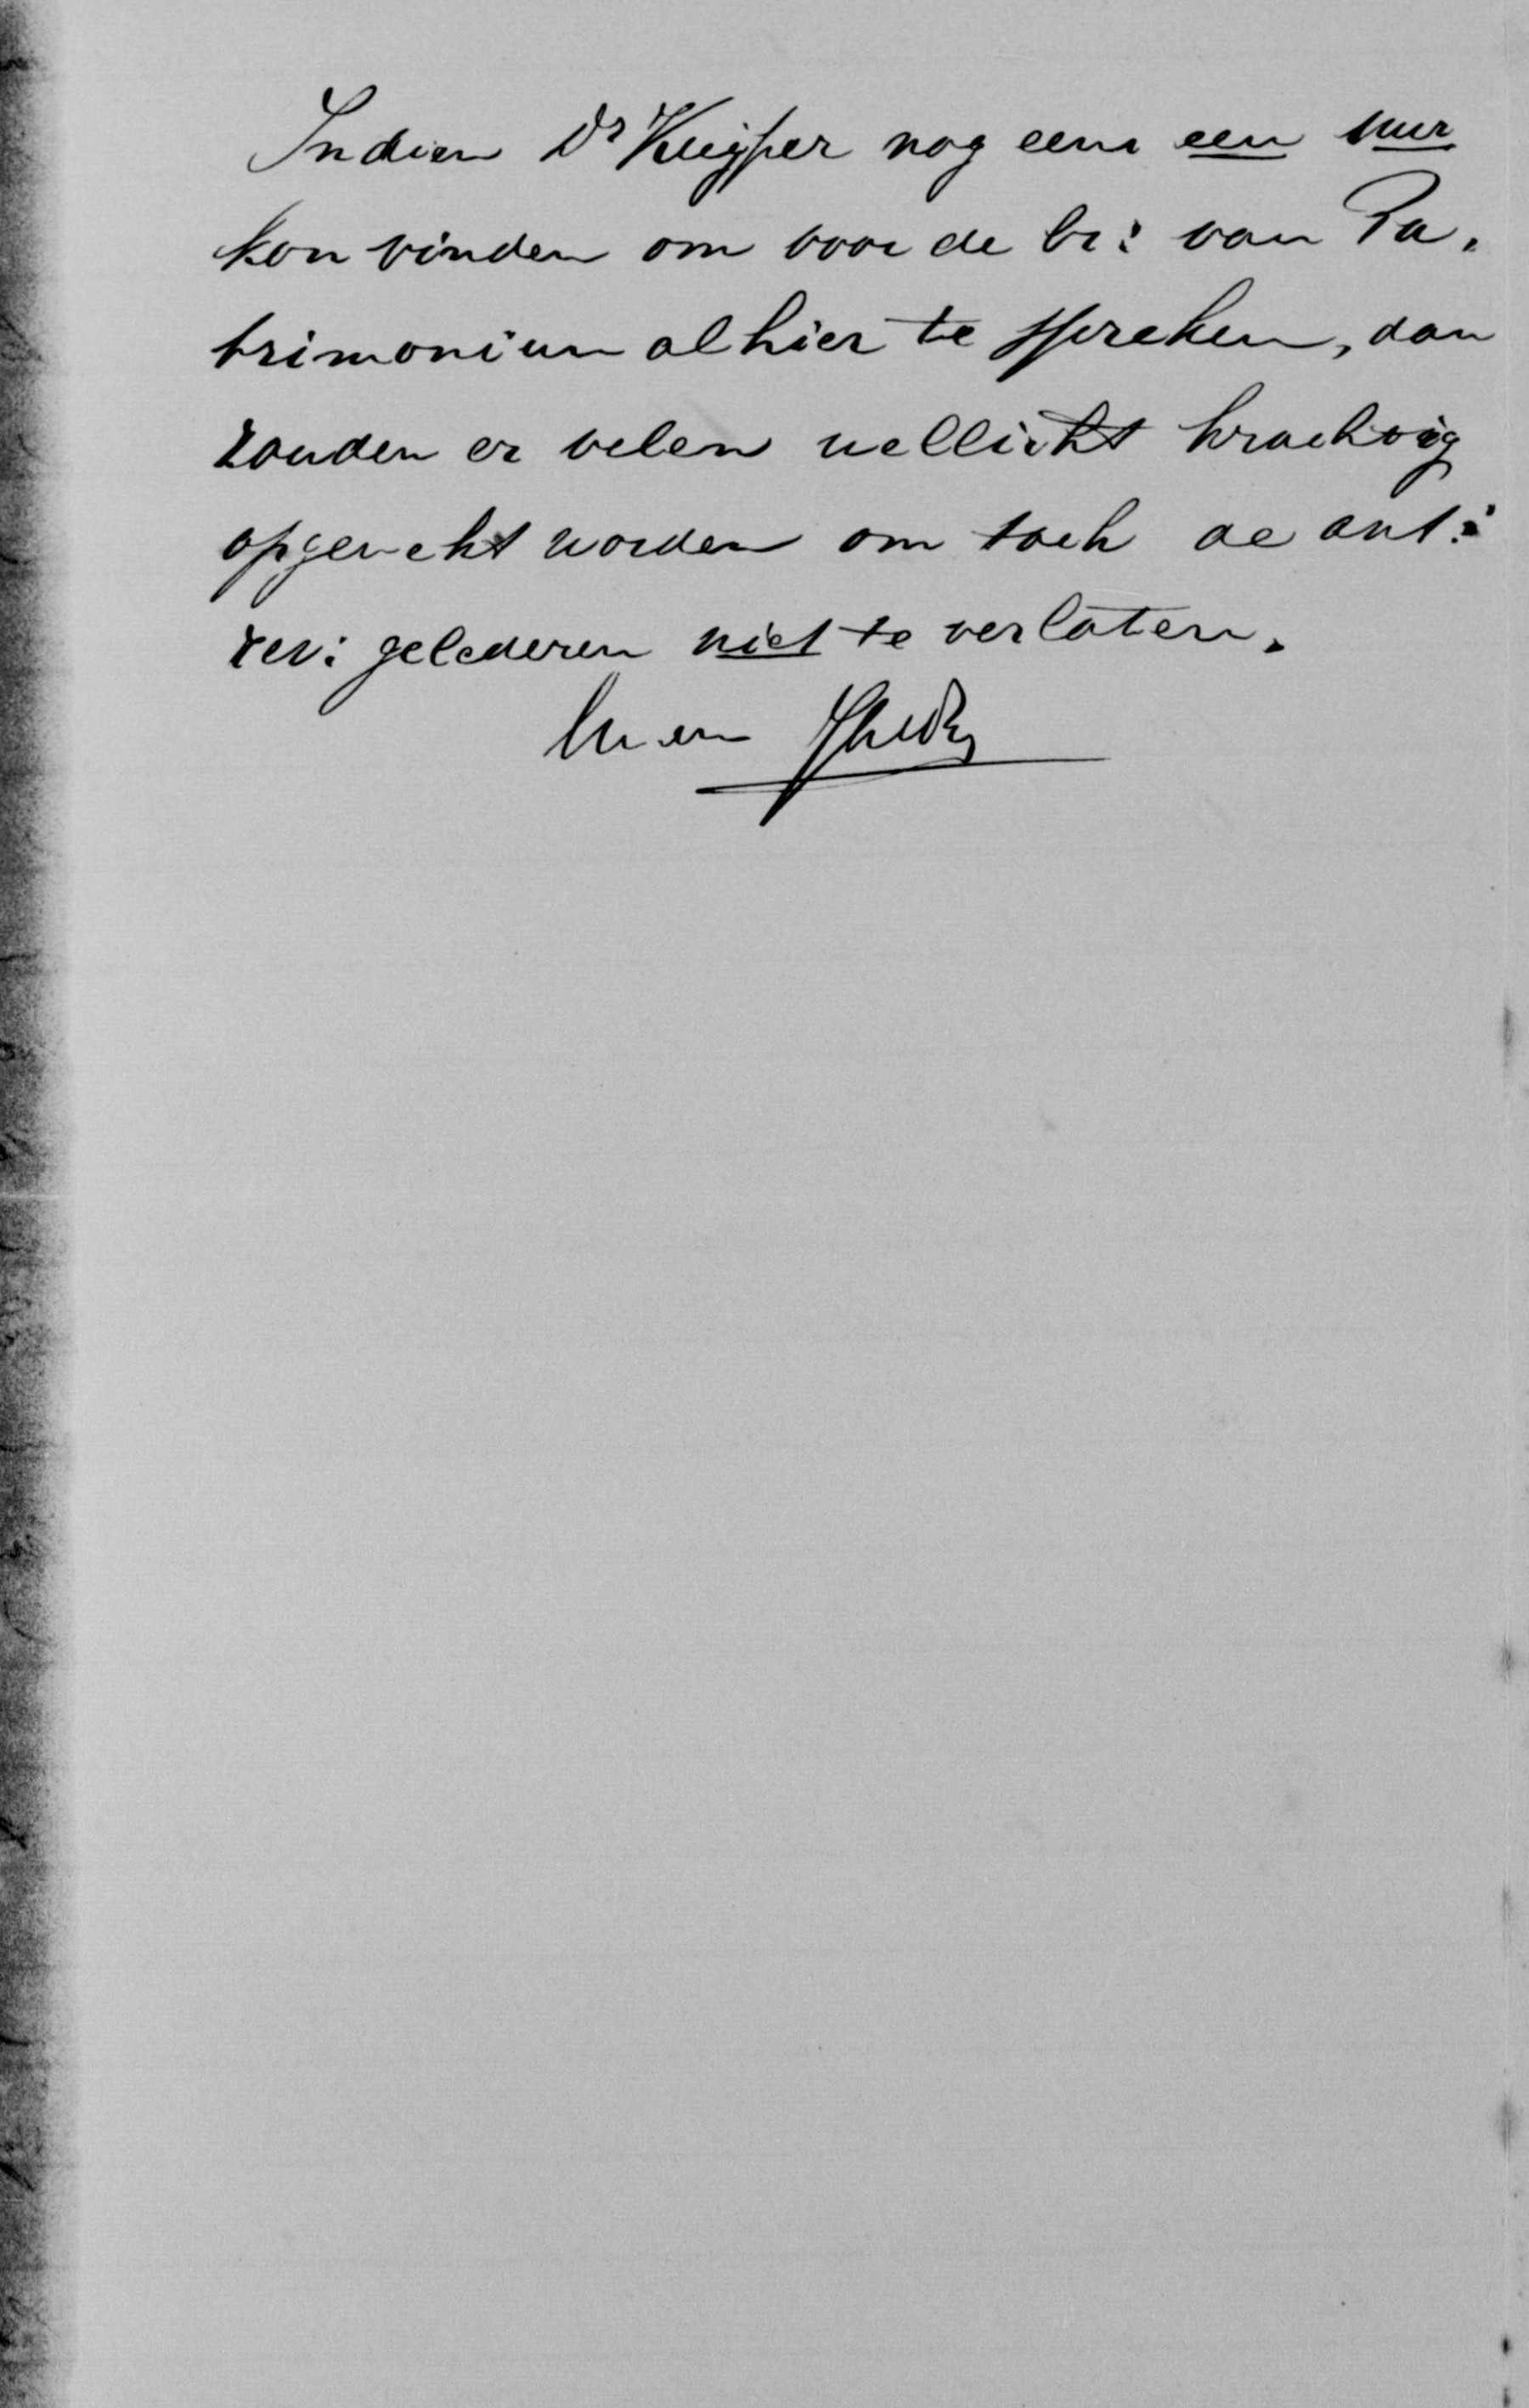 Indien Dr Kuijper nog eens een uur
kon vinden om voor de br: van Pa.
trimonium alhier te spreken, dan
zouden er velen wellicht krachtig
opgewekt worden om toch de ant:
rev: gelederen niet te verlaten.